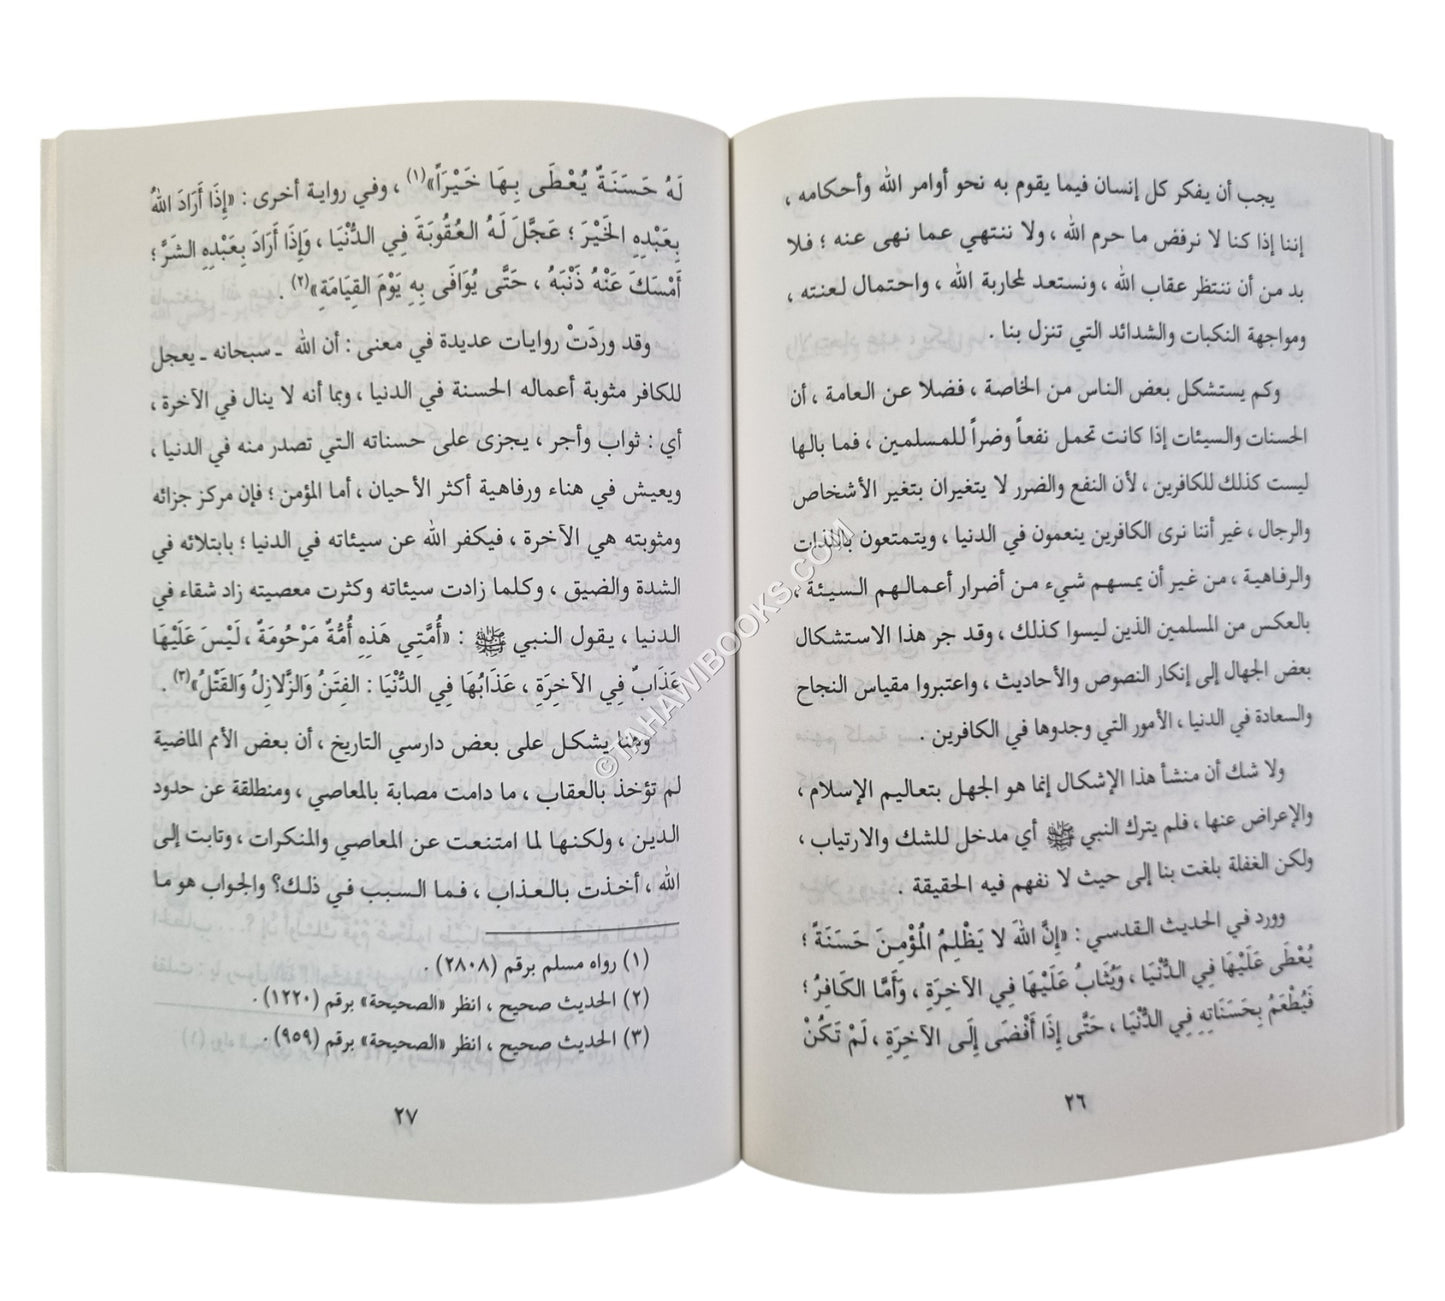 يجب أن يفكر كل إنسان فيما يقوم به نحو أوامر الله وأحكامه ،
إننا إذا كنا لا نرفض ما حرم الله ، ولا ننتهي عما نهى عنه ؛ فلا
بد من أن ننتظر عقاب الله ، ونستعد لمحاربة الله ، واحتمال لعنته ،
ومواجهة النكبات والشدائد التي تنزل بنا .
وكم يستشكل بعض الناس من الخاصة ، فضلا عن العامة ، أن
الحسنات والسيئات إذا كانت تحمل نفعاً وضراً للمسلمين ، فما بالها
ليست كذلك للكافرين ، لأن النفع والضرر لا يتغيران بتغير الأشخاص
والرجال ، غير أننا نرى الكافرين ينعمون في الدنيا ، ويتمتعون باللذات
والرفاهية ، من غير أن يمسهم شيء من أضرار أعمالهم السيئة ،
بالعكس من المسلمين الذين ليسوا كذلك ، وقد جر هذا الاستشكال
بعض الجهال إلى إنكار النصوص والأحاديث ، واعتبروا مقياس النجاح
والسعادة في الدنيا ، الأمور التي وجدوها في الكافرين .
ولا شك أن منشأ هذا الإشكال إنما هو الجهل بتعاليم الإسلام ،
والإعراض عنها ، فلم يترك النبي ﷺ أي مدخل للشك والارتياب ،
ولكن الغفلة بلغت بنا إلى حيث لا نفهم فيه الحقيقة .
وورد في الحديث القدسي : «إِنَّ اللهَ لا يَظْلِمُ الْمُؤْمِنَ حَسَنَةً ؛
يُعْطَى عَلَيْهَا فِي الدُّنْيَا ، وَيُثَابُ عَلَيْهَا فِي الآخِرَةِ ، وَأَمَّا الكَافِرُ ؛
فَيُطْعَمُ بِحَسَنَاتِهِ فِي الدُّنْيَا ، حَتَّى إِذَا أَفْضَى إِلَى الآخِرَةِ ، لَمْ تَكُنْ
٢٦
لَهُ حَسَنَةٌ يُعْطَى بِهَا خَيْرَاً»(١) ، وفي رواية أخرى : «إِذَا أَرَادَ اللهُ
بِعَبْدِهِ الخَيْرَ ؛ عَجَّلَ لَهُ العُقُوبَةَ فِي الدُّنْيَا ، وَإِذَا أَرَادَ بِعَبْدِهِ الشَرَّ ؛
أَمْسَكَ عَنْهُ ذَنْبَهُ ، حَتَّى يُوَافَى بِهِ يَوْمَ القِيَامَةِ»(٢) .
وقد وردَتْ روايات عديدة في معنى : أن الله ـ سبحانه ـ يعجل
للكافر مثوبة أعماله الحسنة في الدنيا ، وبما أنه لا ينال في الآخرة ،
أي : ثواب وأجر ، يجزى على حسناته التي تصدر منه في الدنيا ،
ويعيش في هناء ورفاهية أكثر الأحيان ، أما المؤمن ؛ فإن مركز جزائه
ومثوبته هي الآخرة ، فيكفر الله عن سيئاته في الدنيا ؛ بابتلائه في
الشدة والضيق ، وكلما زادت سيئاته وكثرت معصيته زاد شقاء في
الدنيا ، يقول النبي ﷺ : «أُمَّتِي هَذِهِ أُمَّةٌ مَرْحُومَةٌ ، لَيْسَ عَلَيْهَا
عَذَابٌ فِي الآخِرَةِ ، عَذَابُهَا فِي الدُّنْيَا : الفِتَنُ وَالزَّلازِلُ وَالقَتْلُ»(٣) .
وهنا يشكل على بعض دارسي التاريخ ، أن بعض الأمم الماضية
لم تؤخذ بالعقاب ، ما دامت مصابة بالمعاصي ، ومنطلقة عن حدود
الدين ، ولكنها لما امتنعت عن المعاصي والمنكرات ، وتابت إلى
الله ، أخذت بالعذاب ، فما السبب في ذلك؟ والجواب هو ما
(١) رواه مسلم برقم (٢٨٠٨) .
(٢) الحديث صحيح ، انظر «الصحيحة» برقم (١٢٢٠) .
(٣) الحديث صحيح ، انظر «الصحيحة» برقم (٩٥٩) .
٢٧
©TAHAWIBOOKS.COM